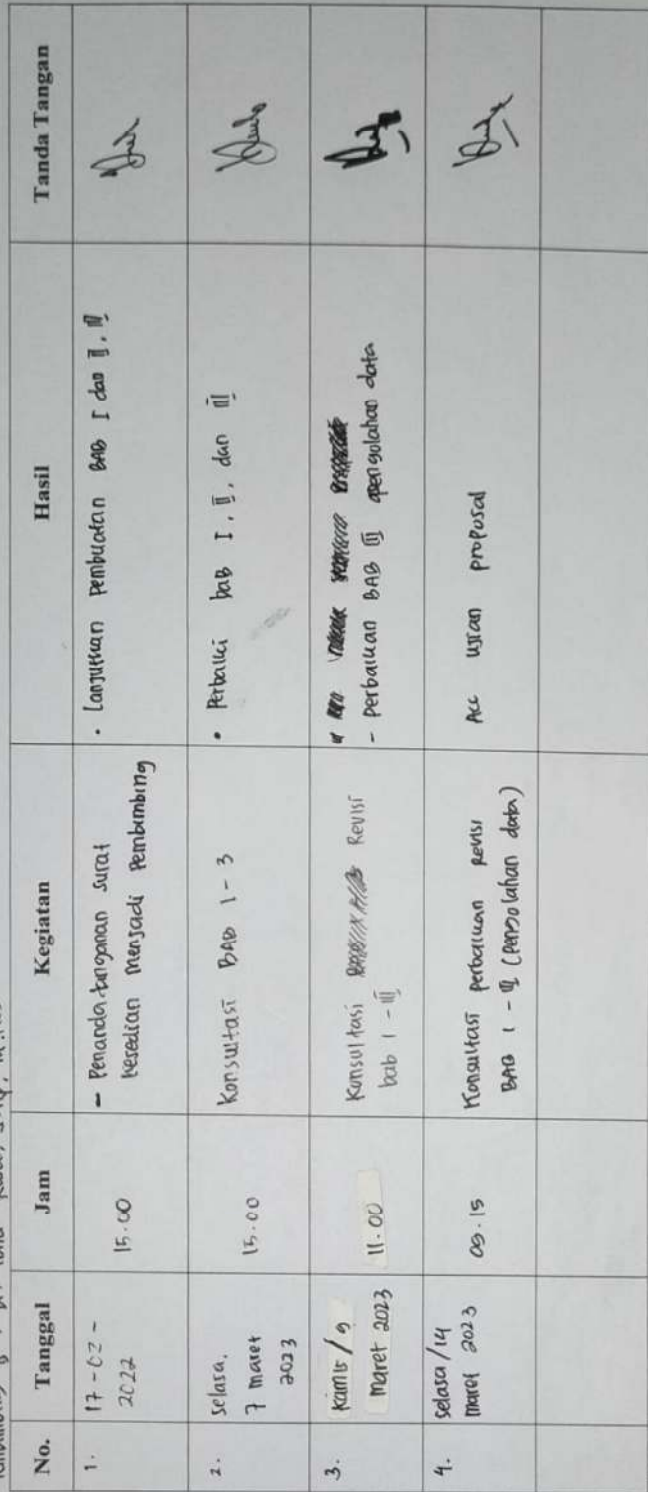 No. Tanggal Jam Kegiatan Hasil Tanda Tangan
1. 17-02-
2022
15.00
- Penandatanganan surat
kesedian menjadi Pembimbing
• Lanjutkan Pembuatan BAB I dan II, III
2. selasa,
7 maret
2023
15.00
Konsultasi BAB 1 - 3
• Perbaiki bab I, II, dan III
3. kamis / 9
maret 2023
11.00
Konsultasi Revisi
bab 1 - III
- Perbaikan BAB III pengolahan data
4. selasa/14
maret 2023
09.15
Konsultasi perbaikan revisi
BAB 1 - III (pengolahan data)
Acc ujian proposal